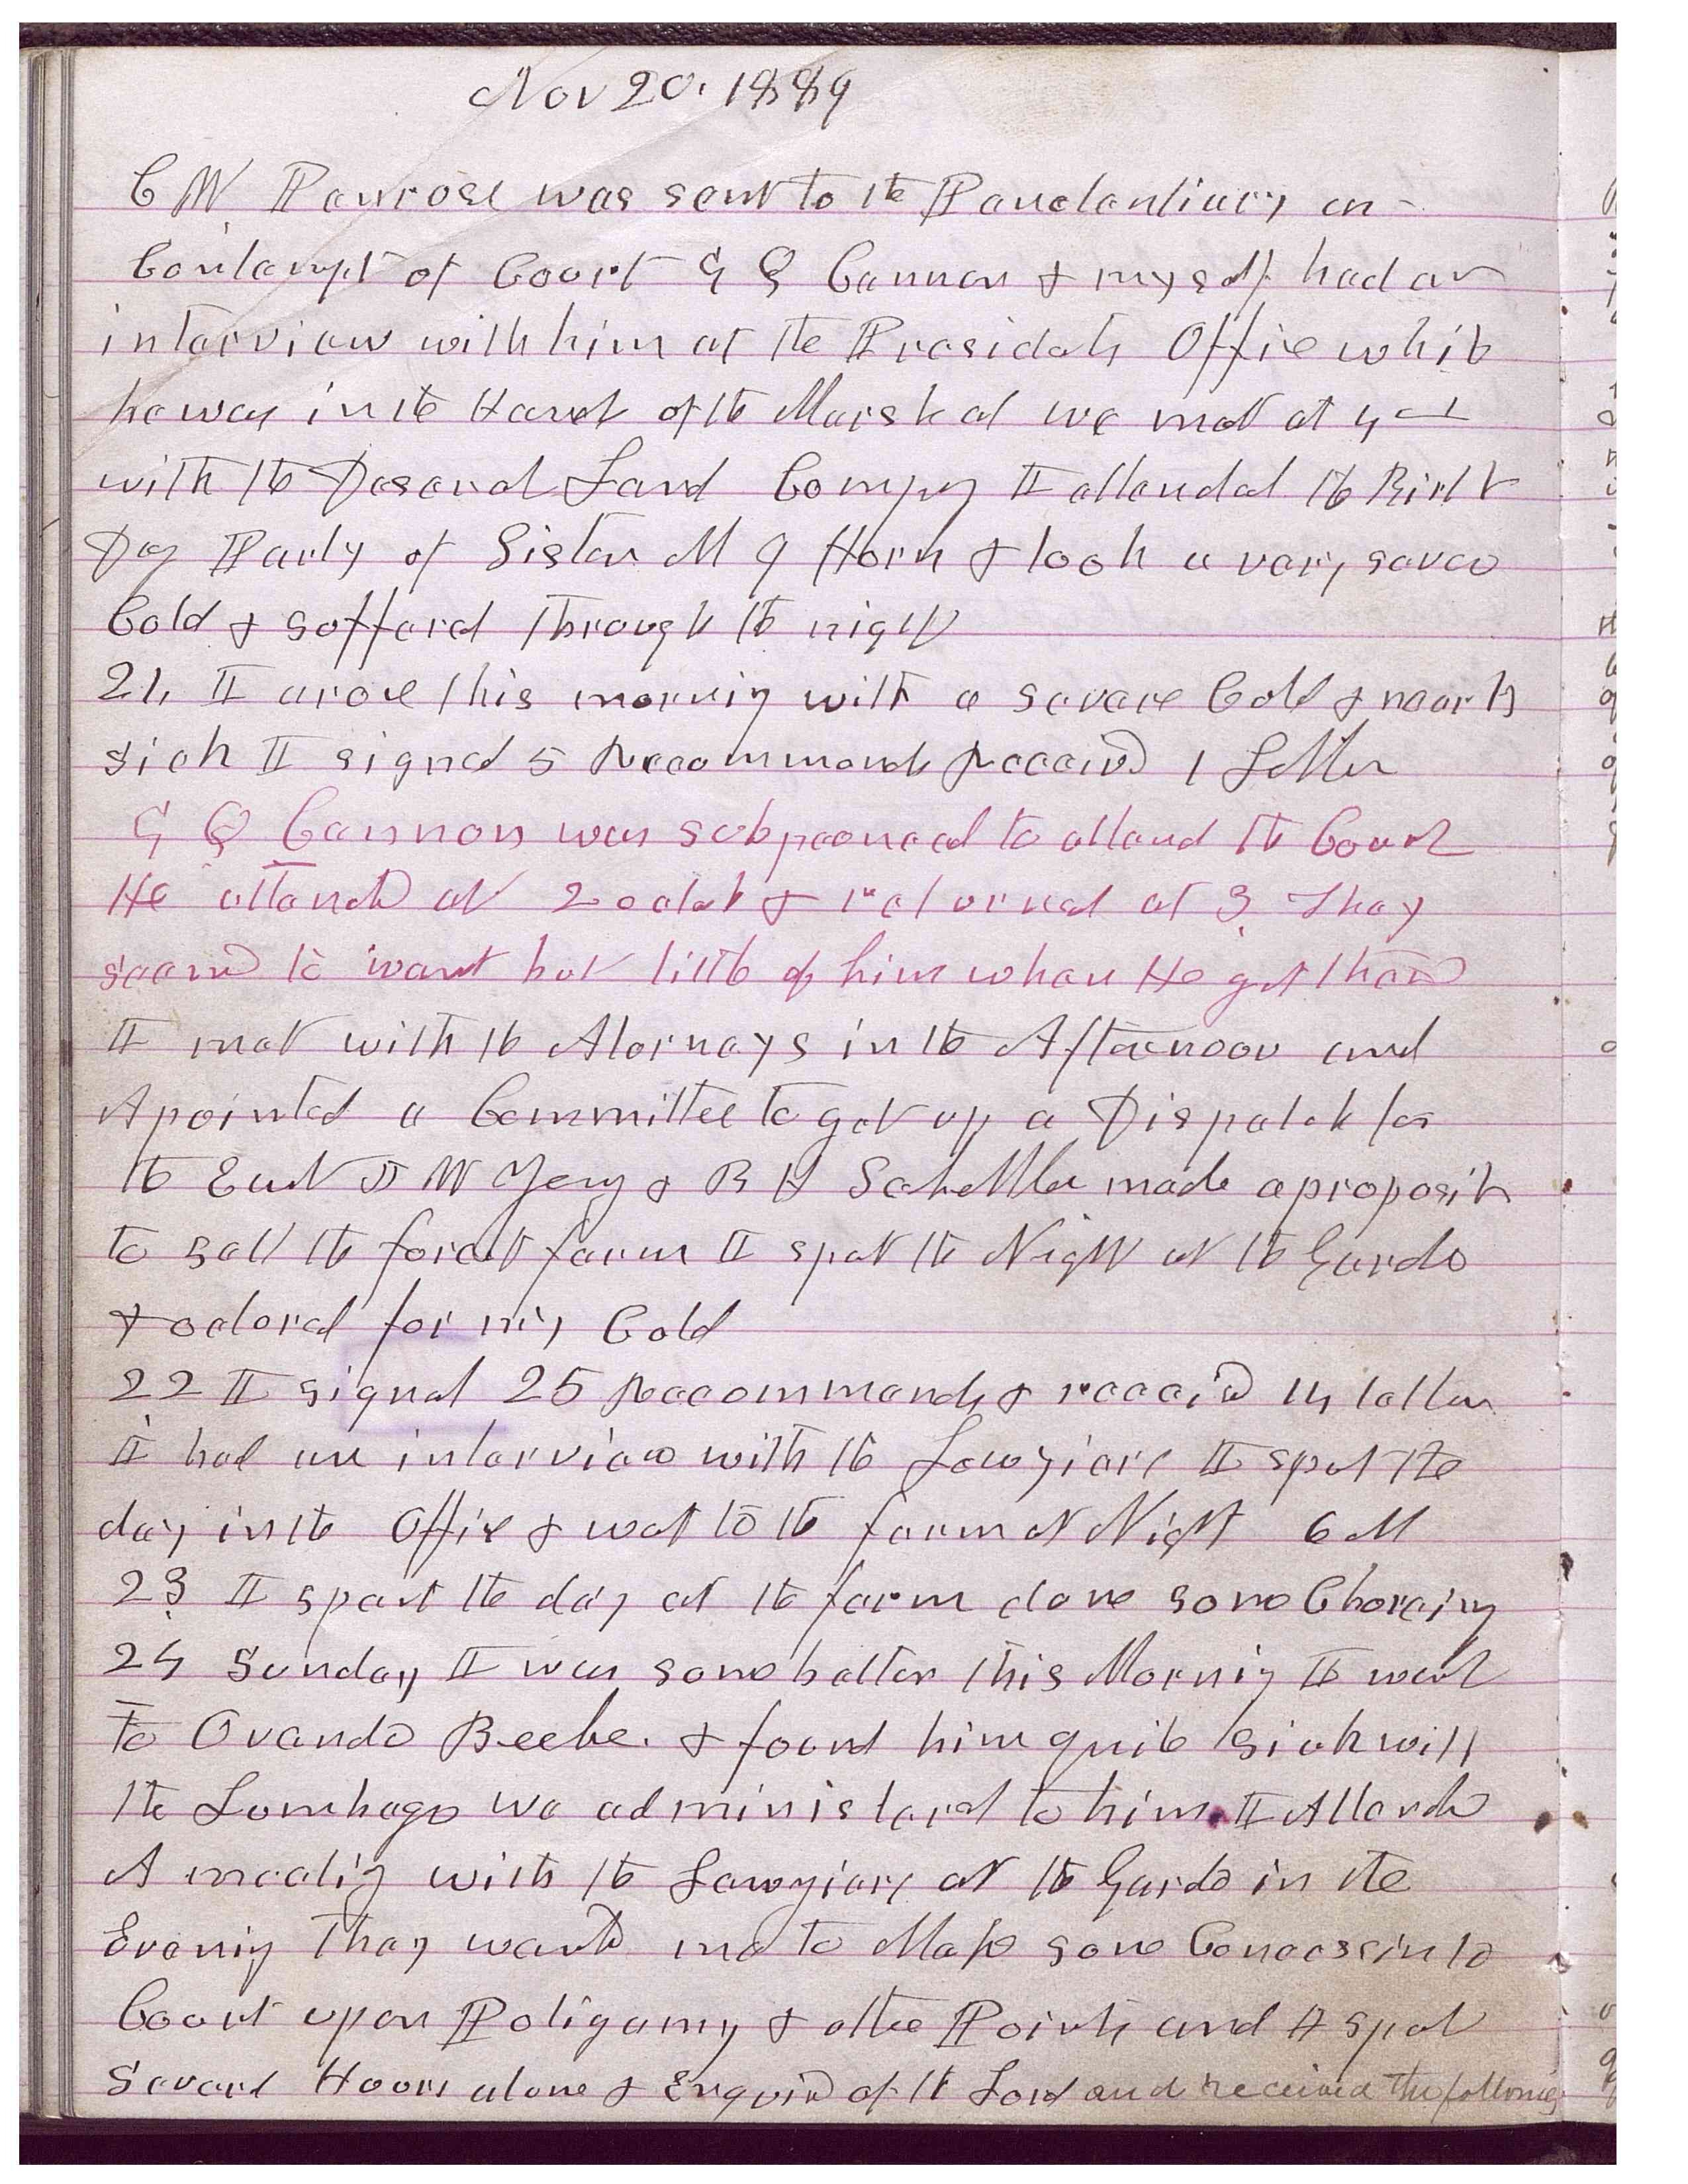 Nov 20. 1889
C W Penrose was sent to the Penetentiary on
Contempt of Court G Q Cannon & myself had an
interview with him at the Presidets Office while
he was in the Hands of the Marshal we met at 4 -
with the Deseret Land Compny I attended the Birth
Day Party of Sister M I Horn & took a very sever
Cold & suffered through the night
21, I arose this morning with a severe Cold & nearly
sick I signed 5 Recommends Receivd 1 Letter
G Q Cannon was subpeoned to attend the Court
He attended at 2 oclok & returned at 3. They
seemd to want but little of him when He got thare
I met with the Atornays in the Afternoon and
Apointed a Committee to get up a Dispatch for
the East J W Young & B H Schettler made a proposit
to sell the forest farm I spent the Night at the Gardo
& octored for my Cold
22 I signed 25 Recommends & receivd 14 letters
I had an interview with the Lawyiers I spent the
day in the Office & wet to the farm at Night 6 M
23 I spent the day at the farm done some Choreing
24 Sunday I was some better this Morning I went
to Ovando Beebe. & found him quite Sick with
the Lumbago we administered to him. I Attended
A meeting with the Lawyiers at the Gardo in the
Evening They wanted me to Make some Concession to
Court upon Poligamy & other Points and I spent
Several Hours alone & Enquired of the Lord and received the following